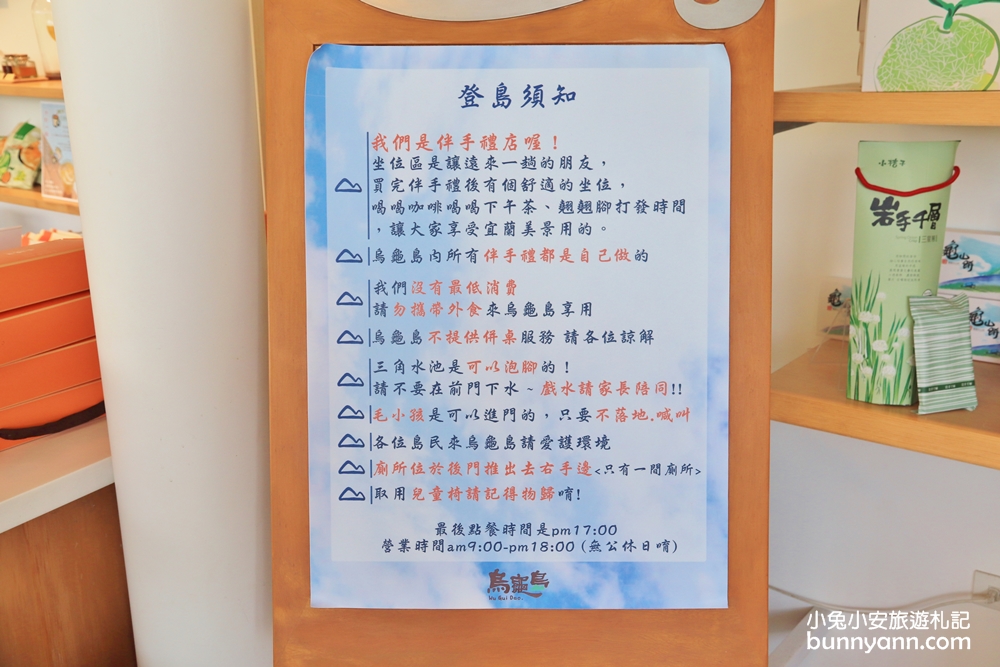 登島須知
我們是伴手禮店喔！
坐位區是讓遠來一趟的朋友，
買完伴手禮後有個舒適的坐位，
喝喝咖啡喝喝下午茶、翹翹腳打發時間
，讓大家享受宜蘭美景用的。
烏龜島內所有伴手禮都是自己做的
我們沒有最低消費
請勿攜帶外食來烏龜島享用
烏龜島不提供併桌服務 請各位諒解
三角水池是可以泡腳的！
請不要在前門下水~戲水請家長陪同!!
毛小孩是可以進門的，只要不落地.喊叫
各位島民來烏龜島請愛護環境
廁所位於後門推出去右手邊<只有一間廁所>
取用兒童椅請記得物歸唷!
最後點餐時間是pm17:00
營業時間am9:00-pm18:00 (無公休日唷)
烏龜島
Wu Gui Dao
岩手千層
小兔小安旅遊札記
bunnyann.com